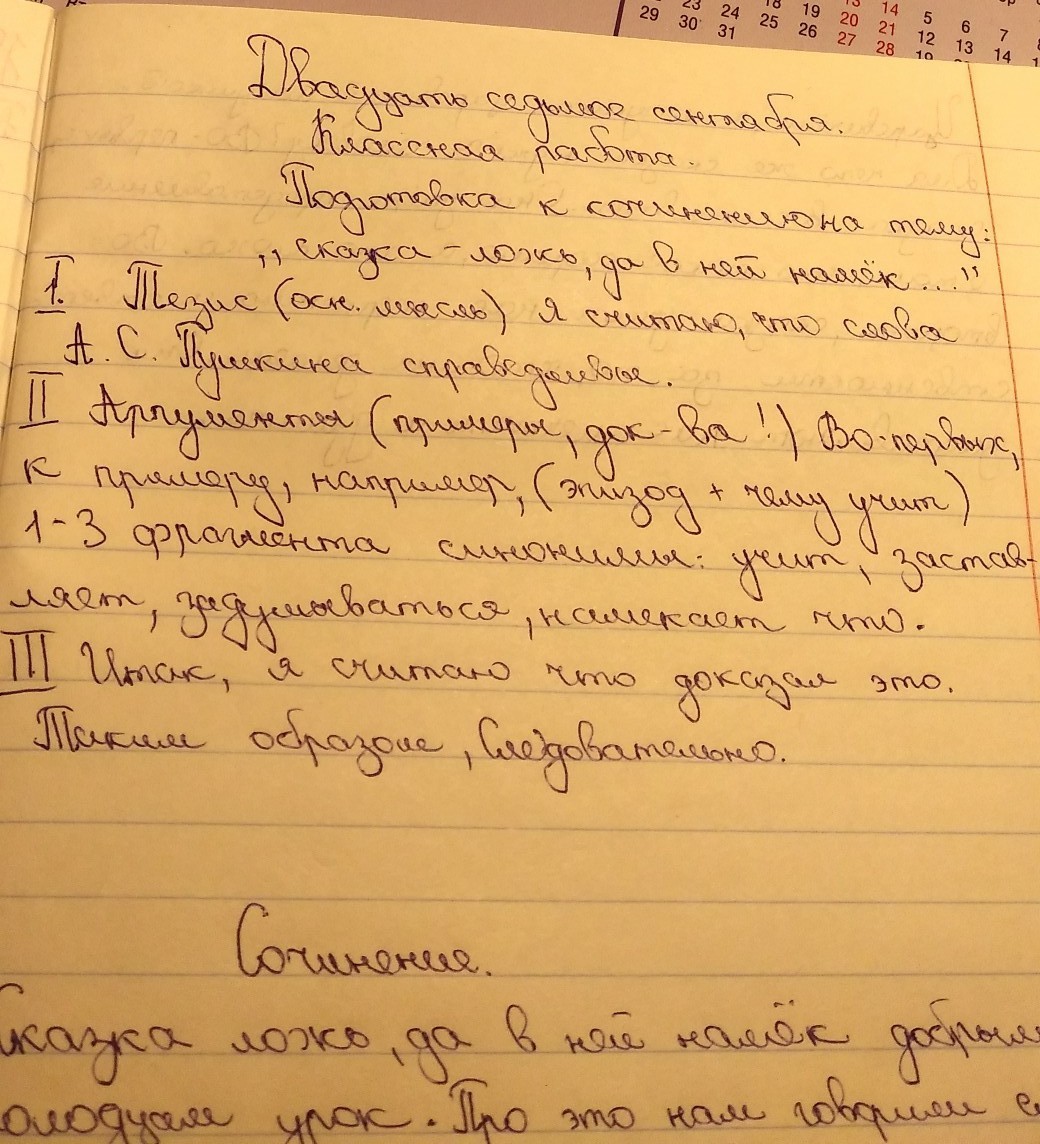 23 18 13 14 5 6 7
29 30 24 19 20 21 12 13 14
31 25 26 27 28 19
Двадцать седьмое сентября.
Классная работа.
Подготовка к сочинению на тему:
,, сказка - ложь, да в ней намёк..."
I. Тезис (осн. мысль) я считаю, что слова
А. С. Пушкина справедливы.
II Аргументы (примеры, док-ва!) Во-первых,
к примеру, например, (эпизод + чему учит)
1-3 фрагмента синонимы: учит, застав-
ляет, задумываться, намекает что.
III Итак, я считаю что доказал это.
Таким образом, Следовательно.
Сочинение.
Сказка ложь, да в ней намёк добрым
молодцам урок. Про это нам говорил